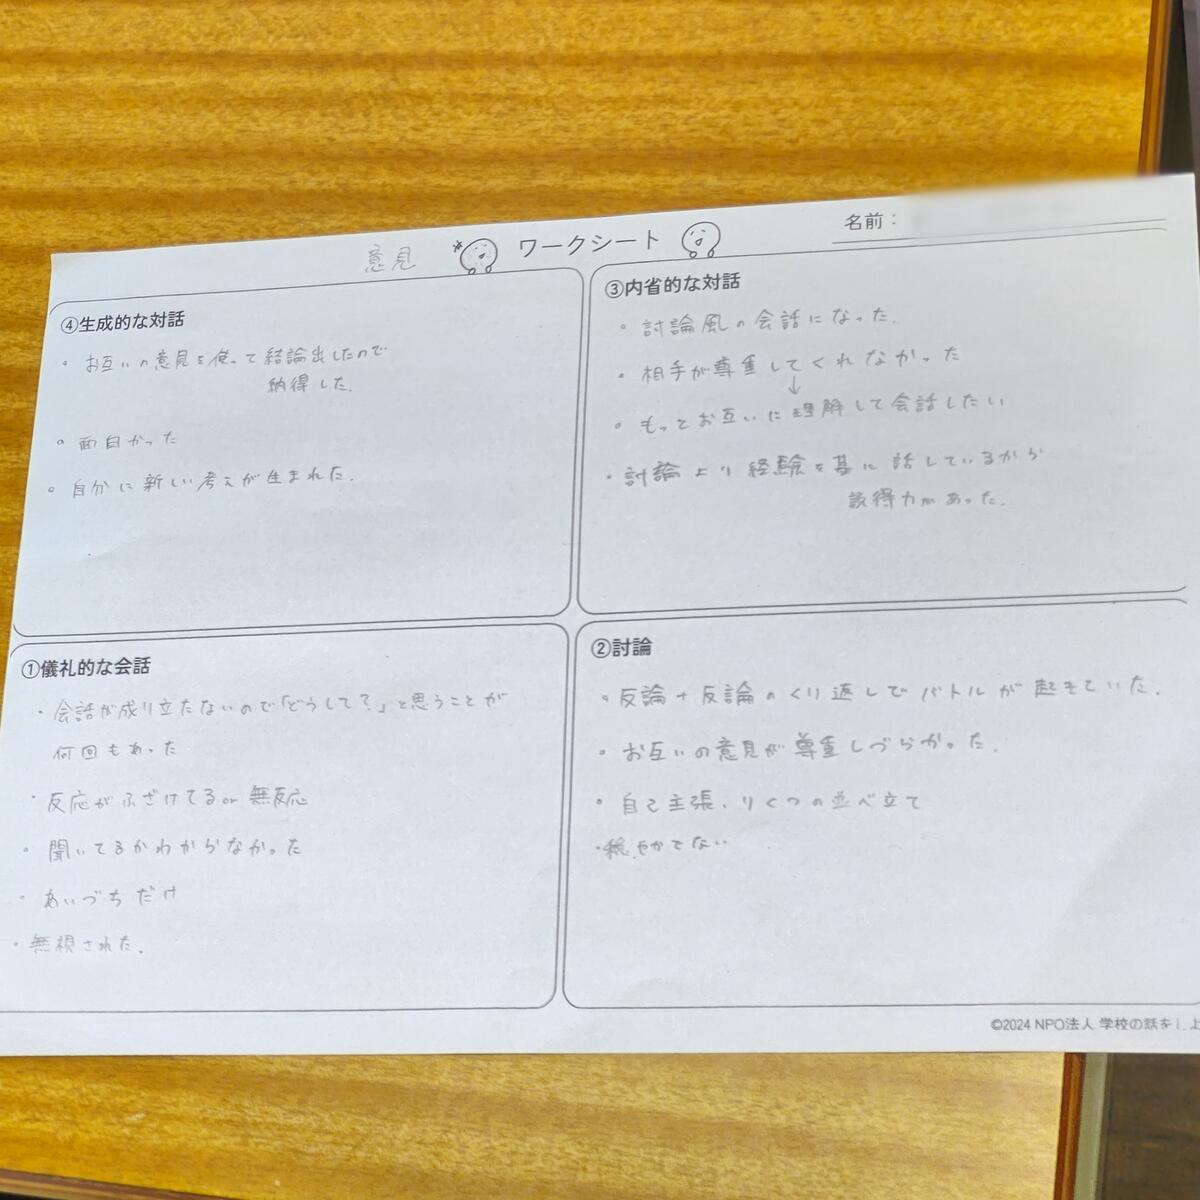 意見
ワークシート
名前：
④生成的な対話
・お互いの意見を使って結論出したので
納得した.
・面白かった
・自分に新しい考えが生まれた.
③内省的な対話
・討論風の会話になった.
・相手が尊重してくれなかった
↓
・もっとお互いに理解して会話したい
・討論より経験を基に話しているから
説得力があった.
①儀礼的な会話
・会話が成り立たないので「どうして？」と思うことが
何回もあった
・反応がふざけてるor無反応
・聞いてるかわからなかった
・あいづちだけ
・無視された.
②討論
・反論+反論のくり返しでバトルが起きていた.
・お互いの意見が尊重しづらかった.
・自己主張、りくつの並べ立て
・穏やかでない
©2024 NPO法人 学校の話をし上